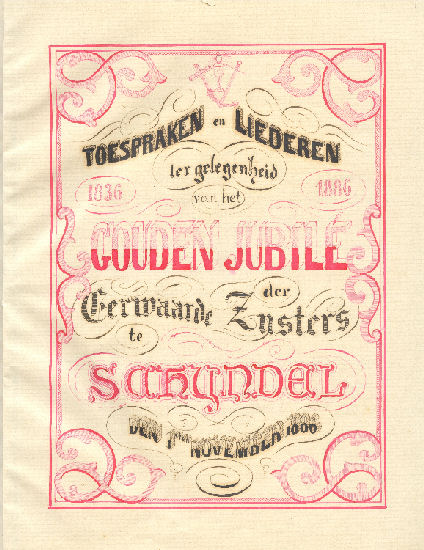 TOESPRAKEN en LIEDEREN
ter gelegenheid
1836 van het 1886
GOUDEN JUBILÉ
der
Eerwaarde Zusters
te
SCHYNDEL
DEN 1sten NOVEMBER 1886